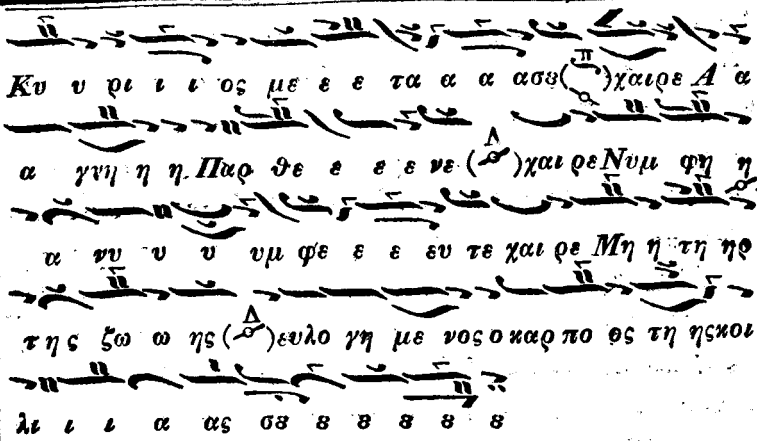 Κυ υ ρι ι ι ος με ε ε τα α α ασȣ (π) χαιρε Α α
α γνη η η Παρ θε ε ε ε νε (Δ) χαιρε Νυμ φη η
α νυ υ υ υμ φε ε ε ευ τε χαι ρε Μη η τη ηρ
της ζω ω ης (Δ) ευλο γη με νος ο καρ πο ος τη ης κοι
λι ι ι α ας σȣ ȣ ȣ ȣ ȣ ȣ